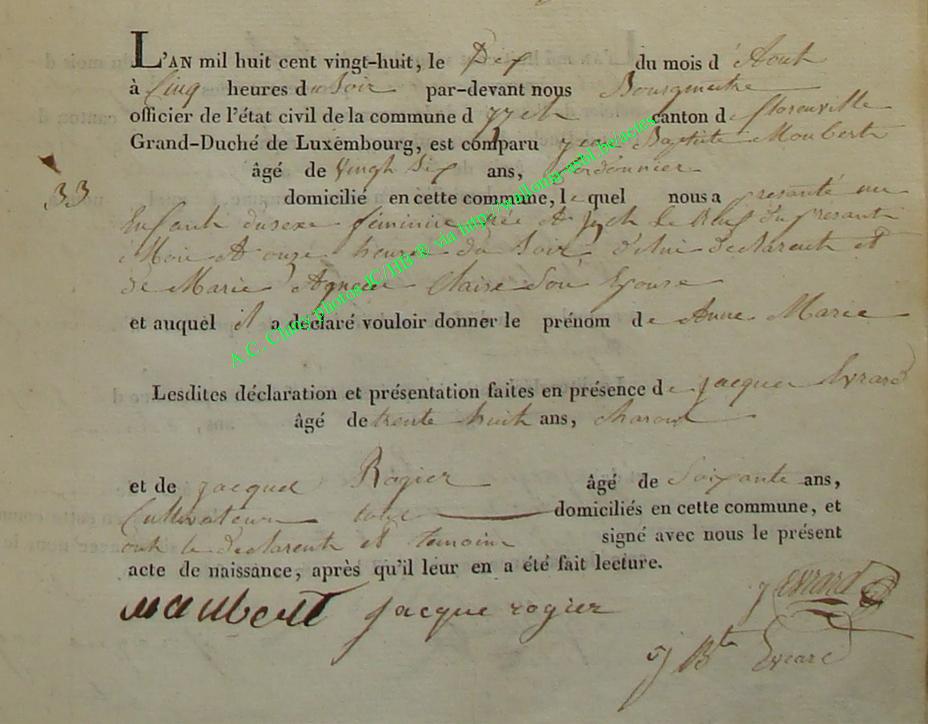 L'AN mil huit cent vingt-huit, le Dix du mois d'Aout
à Cinq heures du Soir par-devant nous Bourgmestre
officier de l'état civil de la commune d'yzel canton de florenville
Grand-Duché de Luxembourg, est comparu Jean Baptiste Moubert
âgé de Vingh Six ans, Cordonnier
33 domicilié en cette commune, lequel nous a presanté un
Enfant du sexe feminine née A le neuf du presant
Moi A onze heures du Soir, de lui declarent et
de Marie Agnees Claise Son Epouse
et auquel il a déclaré vouloir donner le prénom de Anne Marie
Lesdites déclaration et présentation faites en présence de jacques Evrard
âgé de trente huit ans, charon
et de jacques Rogier âgé de Soixante ans,
Cultivateur tous domiciliés en cette commune, et
ont le declarent et temoins signé avec nous le présent
acte de naissance, après qu'il leur en a été fait lecture.
maubert jacque rogier J Evrard
J Bte Evrard
A.C. Chiny photos JC/HB ® via http://wallonia-asbl.be/actes